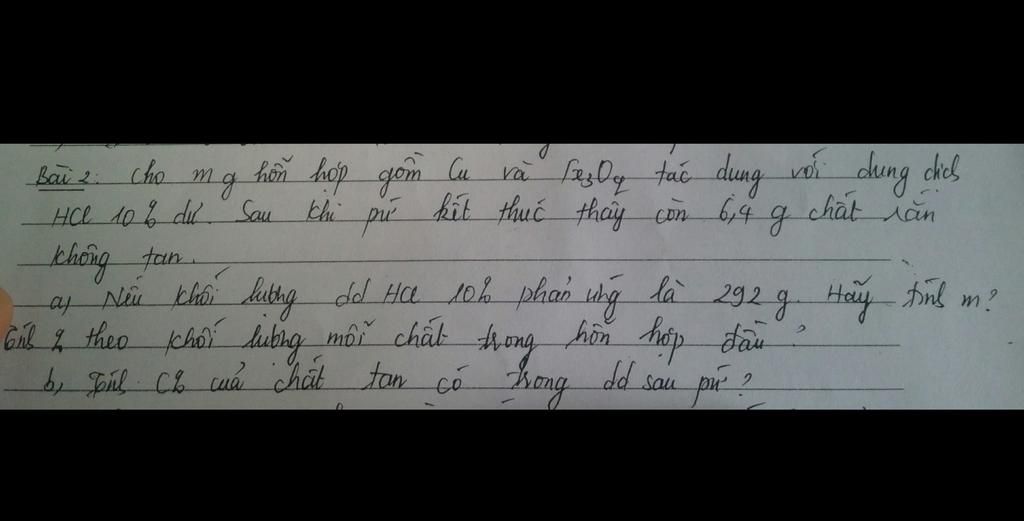 Bài 2: Cho m g hỗn hợp gồm Cu và Fe3O4 tác dụng với dung dịch
HCl 10% dư. Sau khi pứ kết thúc thấy còn 6,4 g chất rắn
không tan.
a, Nếu khối lượng dd HCl 10% phản ứng là 292 g. Hãy tính m?
tính % theo khối lượng mỗi chất trong hỗn hợp đầu?
b, Tính C% của chất tan có trong dd sau pứ?